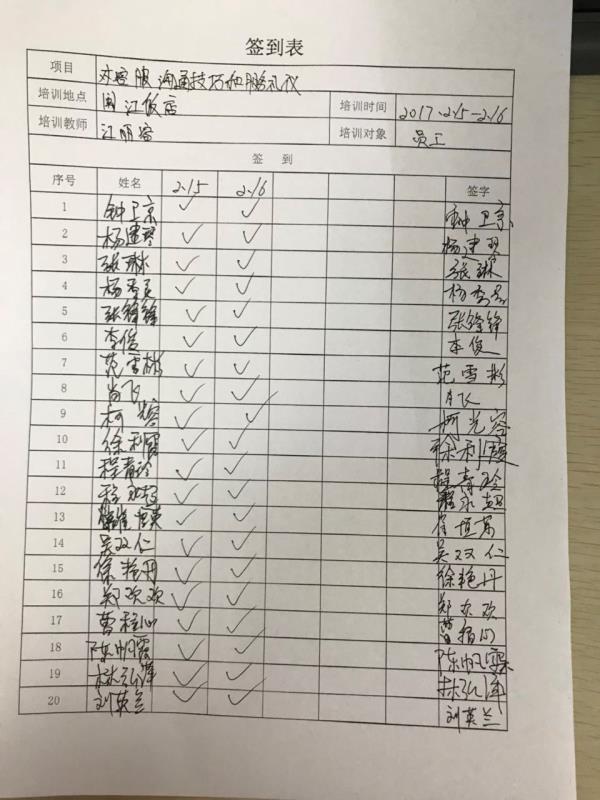 签到表
项目 服 沟通技巧 服务礼仪
培训地点 江饭店 培训时间 2017.2.15-2.16
培训教师 江丽容 培训对象 员工
签 到
序号 姓名 2.15 2.16 签字
1 钟卫京 ✓ ✓ 钟卫京
2 杨建琴 ✓ ✓ 杨建琴
3 张琳 ✓ ✓ 张琳
4 杨 ✓ ✓ 杨
5 张锋锋 ✓ ✓ 张锋锋
6 李俊 ✓ ✓ 李俊
7 范雪彬 ✓ ✓ 范雪彬
8 肖飞 ✓ ✓ 肖飞
9 柯 容 ✓ ✓ 柯 容
10 徐利霞 ✓ ✓ 徐利霞
11 程青玲 ✓ ✓ 程青玲
12 程永超 ✓ ✓ 程永超
13 崔 ✓ ✓ 崔
14 吴双仁 ✓ ✓ 吴双仁
15 徐艳丹 ✓ ✓ 徐艳丹
16 郑欢欢 ✓ ✓ 郑欢欢
17 曹 ✓ ✓ 曹
18 陈帆霖 ✓ ✓ 陈帆霖
19 林弘泽 ✓ ✓ 林弘泽
20 刘英兰 ✓ ✓ 刘英兰